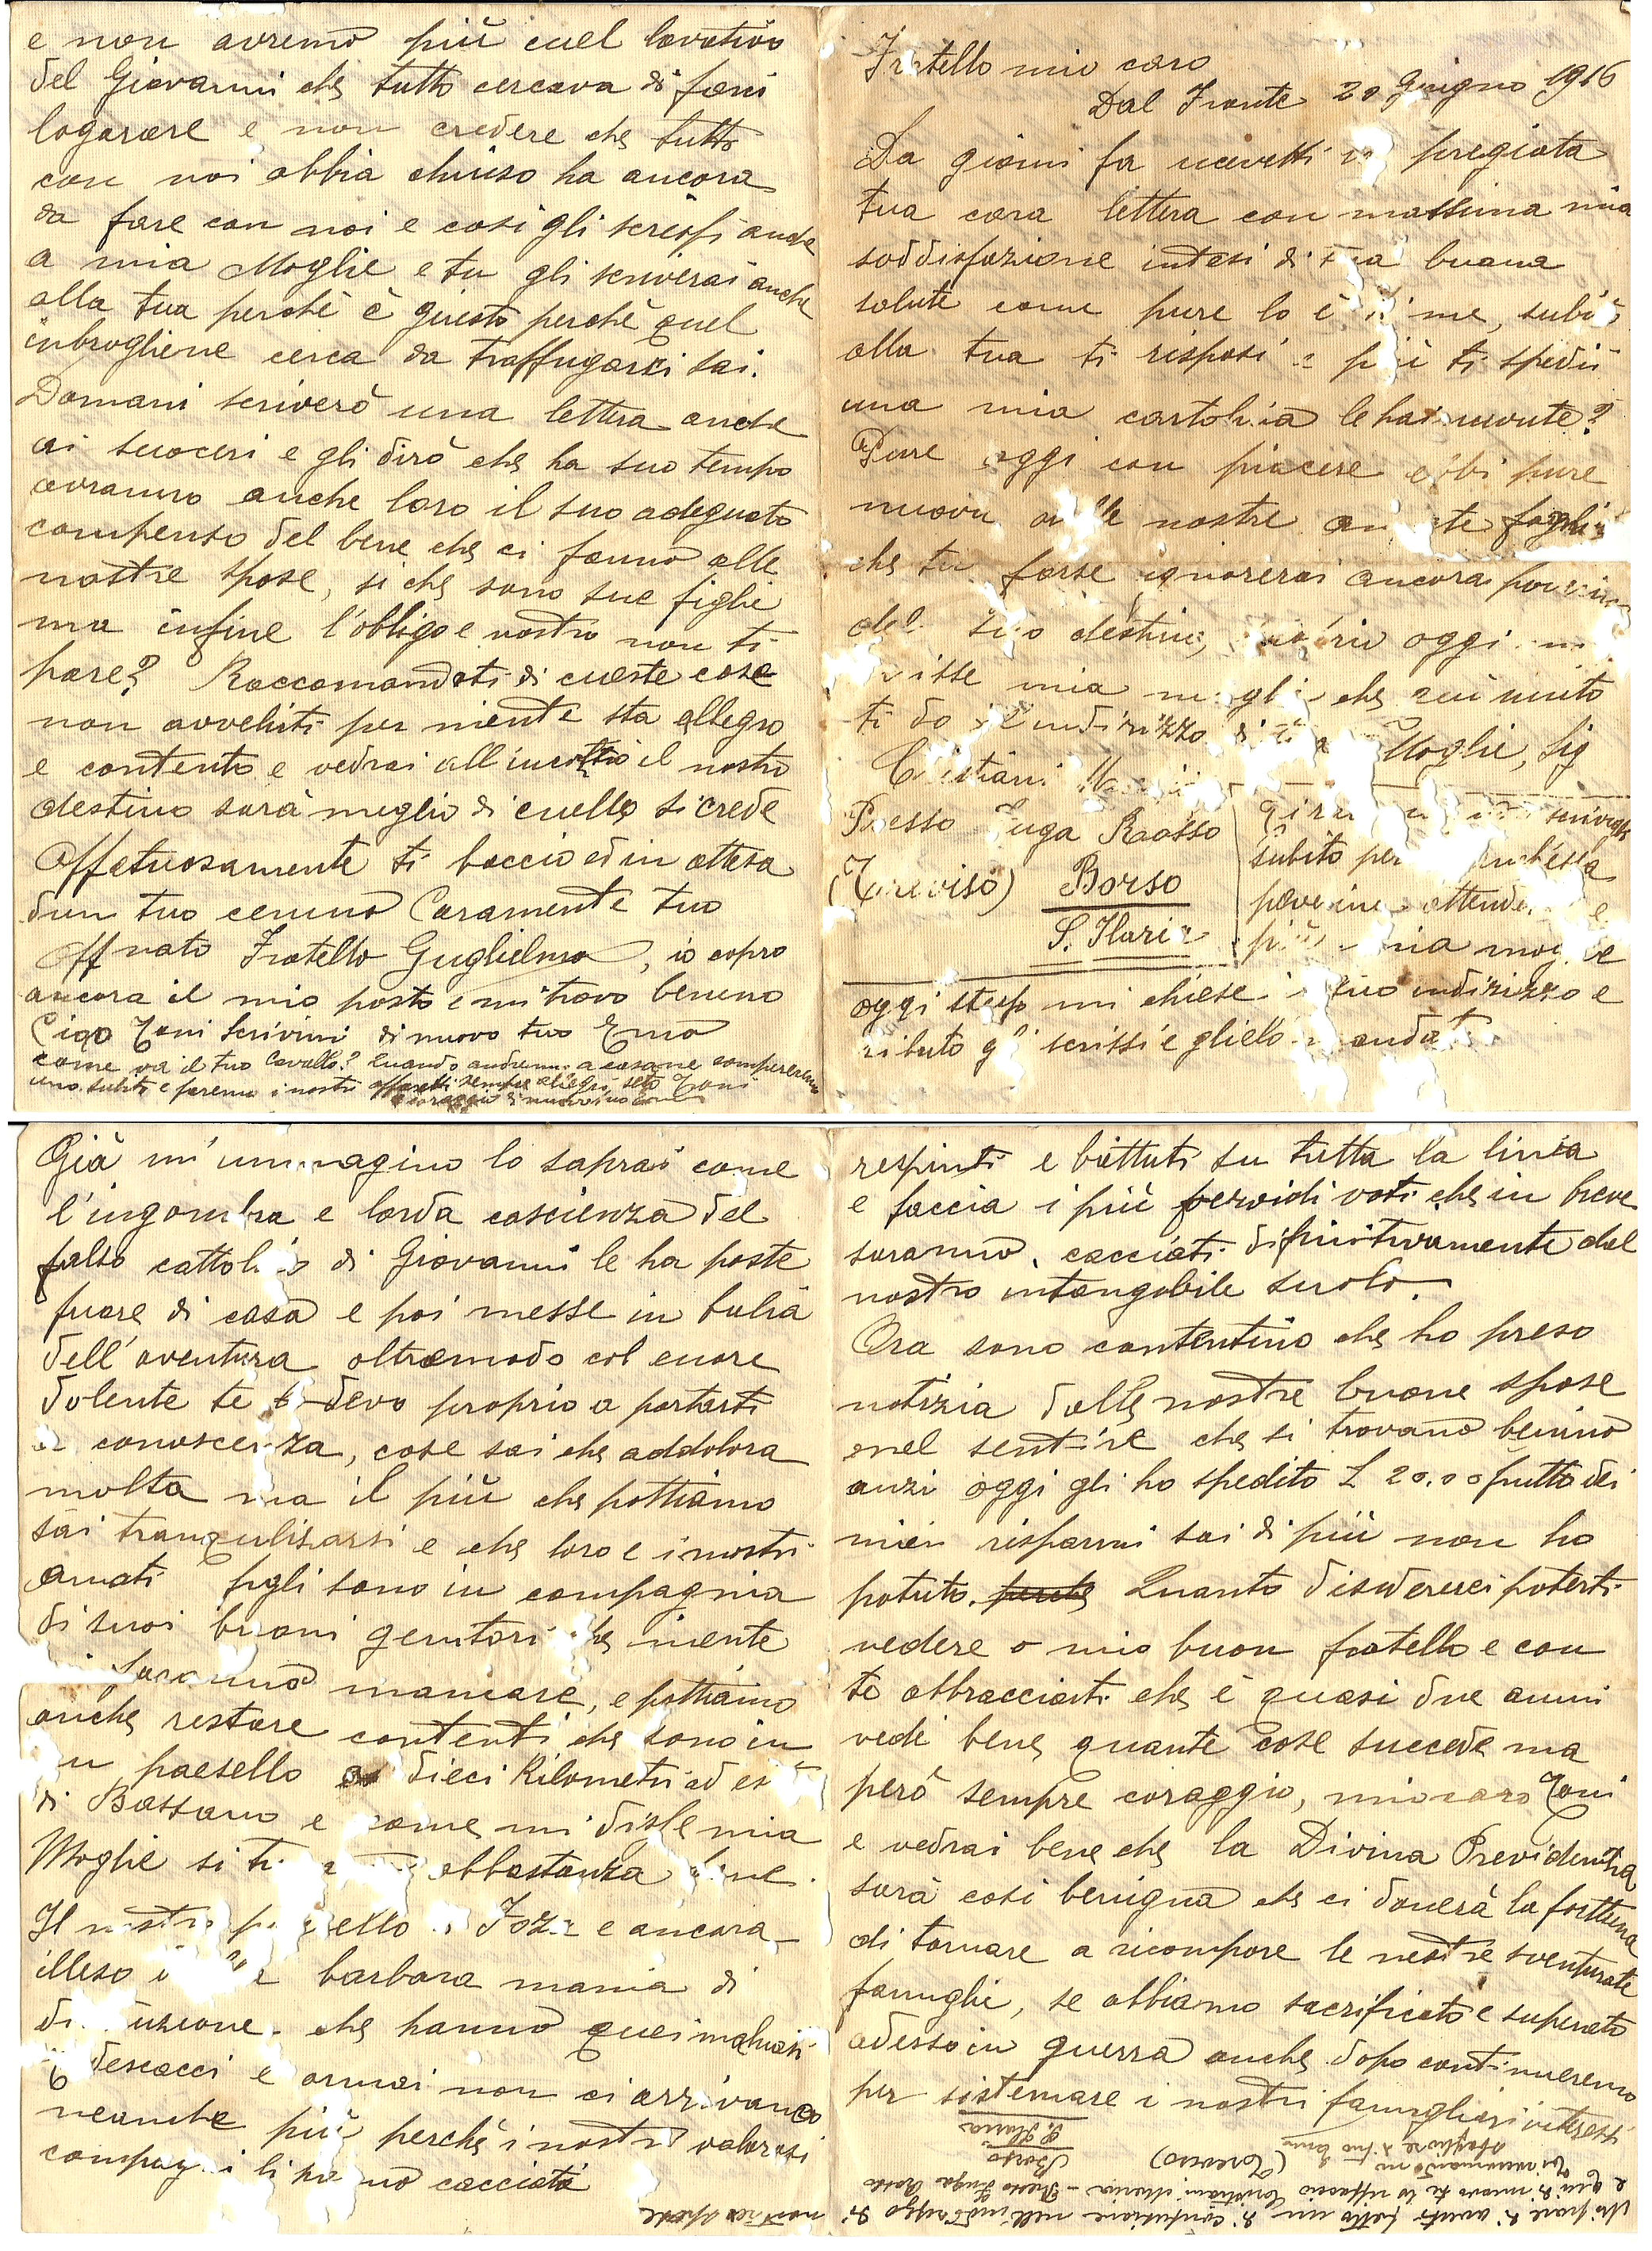 Fratello mio caro
Dal Fronte 20 Giugno 1916
Da giorni fa ricevetti pregiata
tua cara lettera con massima mia
soddisfazione intesi di tua buona
salute come pure lo è di me, subito
alla tua ti risposi e più ti spedii
una mia cartolina le hai ricevute?
Pure oggi con piacere ebbi pure
nuova nostre
che tu forse ignorerai ancora
del suo destino, oggi
scrisse mia moglie che
ti do l'indirizzo di Moglie, Sig
Cristiani
Presso Zuga Rosso
(Treviso) Borso
S. Ilaria
scriverli
subito
poverina attende
più mia moglie
oggi stesso mi chiese il tuo indirizzo e
subito gli scrissi e glielo mandato
Già m'immagino lo saprai come
l'ingombra e lorda coscienza del
falso cattolico di Giovanni le ha poste
fuore di casa e poi messe in balia
dell'aventura oltremodo col cuore
dolente te devo proprio a portarti
a conoscenza, cose sai che addolora
molta ma il più che pottiamo
sai tranquilisarsi e che loro e i nostri
amati figli sono in compagnia
di suoi buoni genitori che niente
faranno mancare, e pottiamo
anche restare contenti che sono in
un paesello a dieci Kilometri ad est
di Bassano e come mi disse mia
Moglie si abbastanza bene.
Il nostro paesello Foza e ancora
illeso barbara mania di
distruzione che hanno quei malnati
Tedescacci e ormai non ci arrivano
neanche più perchè i nostri valorosi
compagni li hanno cacciati
respinti e battuti su tutta la linea
e faccia i più fervidi voti che in breve
saranno, cacciati difinitivamente dal
nostro intangibile suolo.
Ora sono contentino che ho preso
notizia dalle nostre buone spose
nel sentire che si trovano benino
anzi oggi gli ho spedito L 20.00 frutto dei
miei risparmi sai di più non ho
potuto. perchè Quanto disidererei poterti
vedere o mio buon fratello e con
te abbracciarti che è quasi due anni
vedi bene quante cose succede ma
però sempre coraggio, mio caro Toni
e vedrai bene che la Divina Providenza
sarà cosi benigna che ci donerà la forttuna
di tornare a ricompore le nostre sventurate
famiglie, se abbiamo sacrificato e superato
adesso in guerra anche dopo continueremo
per sistemare i nostri famigliari interessi
e non avremo più quel lavativo
del Giovanni che tutto cercava di farci
logorare e non credere che tutto
con noi abbia chiuso ha ancora
da fare con noi e cosi gli scrissi anche
a mia Moglie e tu gli scriverai anche
alla tua perchè è giusto perchè quel
imbroglione cerca da traffugarci sai.
Domani scriverò una lettera anche
ai suoceri e gli dirò che ha suo tempo
avranno anche loro il suo adeguato
compenso del bene che ci fanno alle
nostre spose, si che sono sue figlie
ma infine l'obbligo e nostro non ti
pare? Raccomandati di cueste cose
non avvelirti per niente sta allegro
e contento e vedrai all'incontrio il nostro
destino sarà meglio di cuello si crede
Affetuosamente ti baccio ed in attesa
d'un tuo cenno Caramente tuo
Aff nato Fratello Guglielmo, io copro
ancora il mio posto e mi trovo benino
Ciao Toni Scrivimi di nuovo tuo Emo
come va il tuo Cavallo? Quando andremo a casa ne compereremo
uno subito e faremo i nostri affaretti sempre allegri Toni
coraggio di nuovo tuo
Mi pare di averti fatto un di confusione nell'indirizzo di
nostre spose
e qui di nuovo te lo rifaccio Cristiani Maria - Presso Zuga Rosso
Borso (Treviso)
S. Ilaria